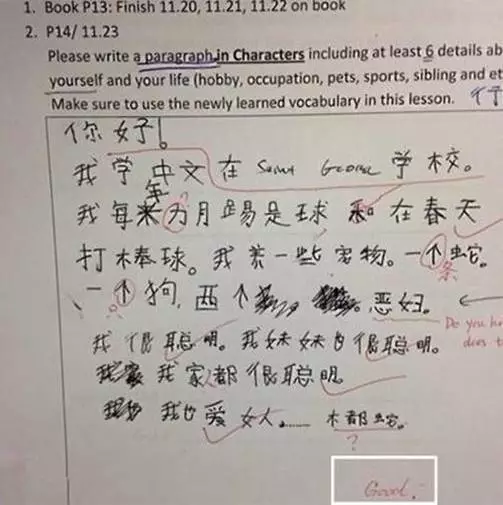 1. Book P13: Finish 11.20, 11.21, 11.22 on book
2. P14/ 11.23
Please write a paragraph in Characters including at least 6 details ab
yourself and your life (hobby, occupation, pets, sports, sibling and et
Make sure to use the newly learned vocabulary in this lesson.
你好!
我学中文在 Saint George 学校。
年
我每 月踢是球和在春天
打棒球。我养一些宠物。一个蛇。
条
一个狗,两个 恶妇。
Do you ha
does t
我很聪明。我妹妹也很聪明。
我家都很聪明。
我也爱女人…… 木都蛇。
?
Good.